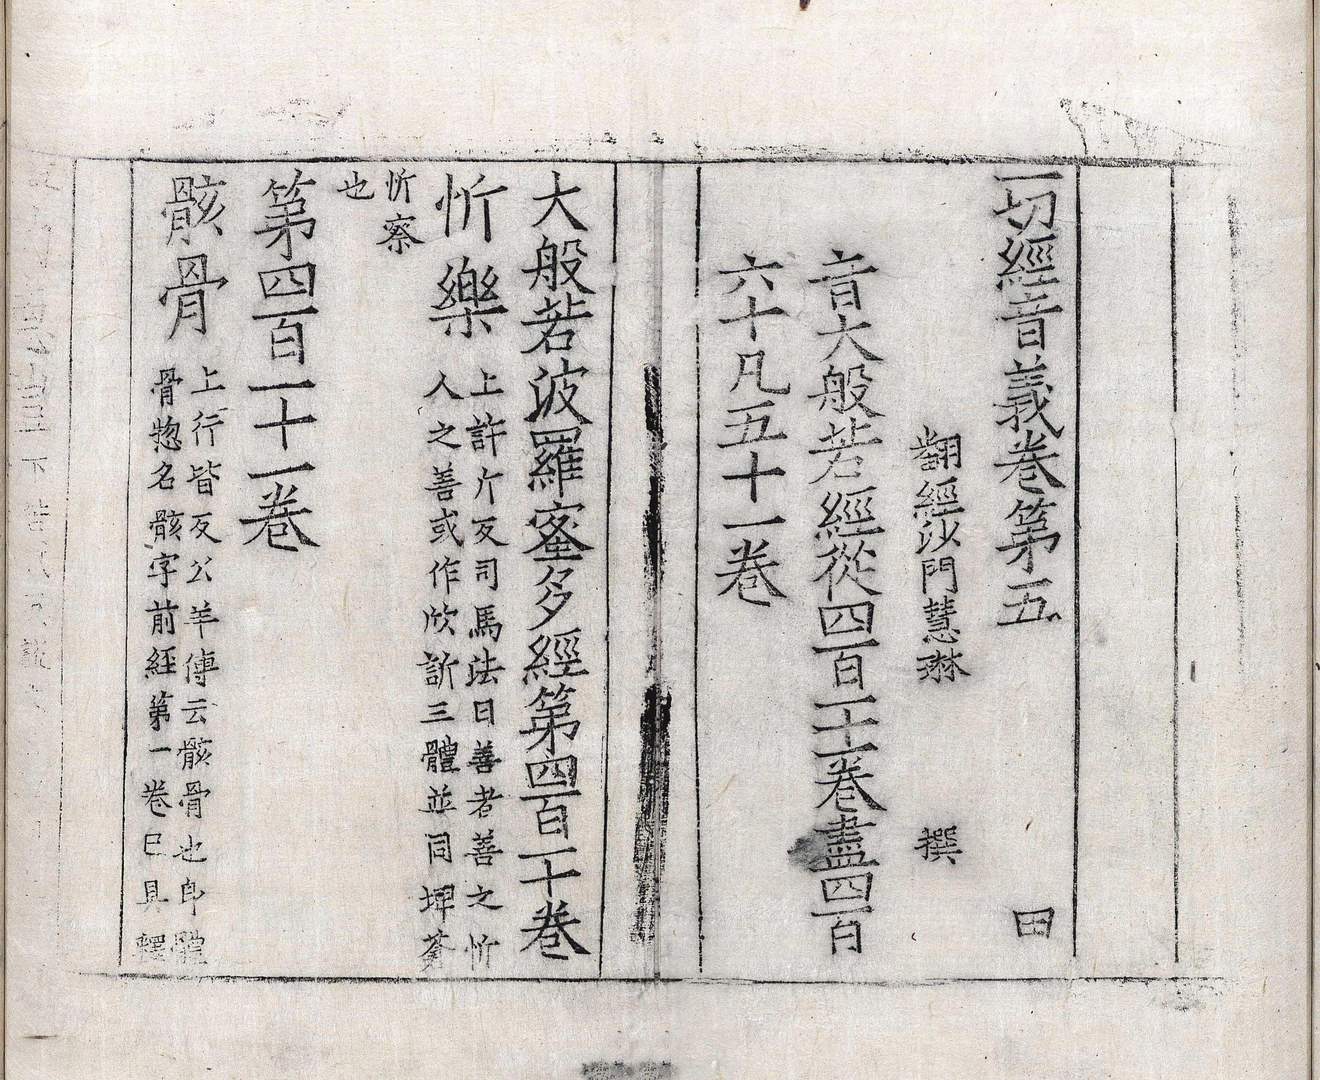 一切經音義卷第五 田
翻經沙門慧琳 撰
音大般若經從四百一十卷盡四百
六十凡五十一卷
大般若波羅蜜多經第四百一十卷
忻樂 上許斤反司馬法曰善者善之忻
人之善或作欣訢三體並同埤蒼
忻察
也
第四百一十一卷
骸骨 上行皆反公羊傳云骸骨也即體
骨惣名骸字前經第一卷巳具釋